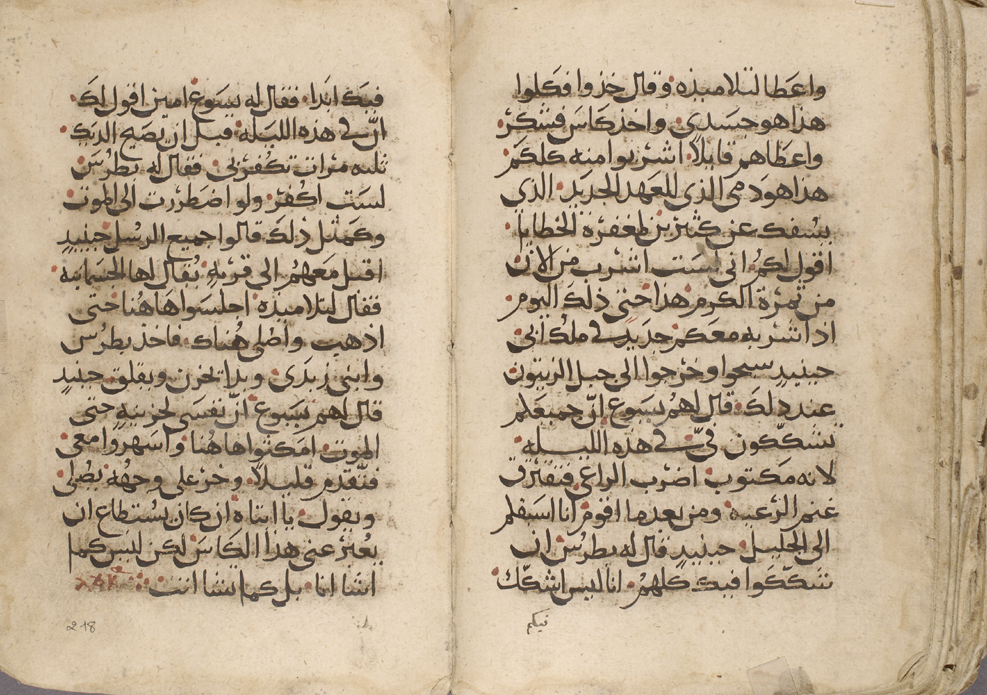 واعطا لتلاميذه وقال خذوا فكلوا
هذا هو جسدي واخذ كاس فشكر
واعطاهم قايلا اشربوا منه كلكم
هذا هو دمي الذي للعهد الجديد الذي
يسفك عن كثيرين لمغفرة الخطايا
اقول لكم اني لست اشرب من الان
من ثمرة الكرم هذا حتى ذلك اليوم
اذا اشربه معكم جديد في ملك ابي
حينيد سبحوا وخرجوا الى جبل الزيتون
عند ذلك قال لهم يسوع ان جميعكم
تشككون فيّ في هذه الليله
لانه مكتوب اضرب الراعي فتفترق
غنم الرعيه ومن بعد ما اقوم انا اسبقكم
الى الجليل حينيد قال له بطرس ان
شككوا فيك كلهم انا ليس اشكك
فيكم
فيك ابدا فقال له يسوع امين اقول لك
ان في هذه الليله قبل ان يصيح الديك
ثلثه مرات تكفر بي فقال له بطرس
لست اكفر ولو اضطررت الى الموت
وكمثل ذلك قالوا جميع الرسل حينيد
اقبل معهم الى قريه يقال لها الجسمانيه
فقال لتلاميذه اجلسوا هاهنا حتى
اذهب واصلي هناك فاخذ بطرس
وابني زبدي وبدا يحزن ويقلق حينيد
قال لهم يسوع ان نفسي لحزينه حتى
الموت امكثوا هاهنا واسهروا معي
فتقدم قليلا وخر على وجهه يصلي
ويقول يا ابتاه ان كان يستطاع ان
يعبر عني هذا الكاس لكن ليس كما
اشا انا بل كما تشا انت
218